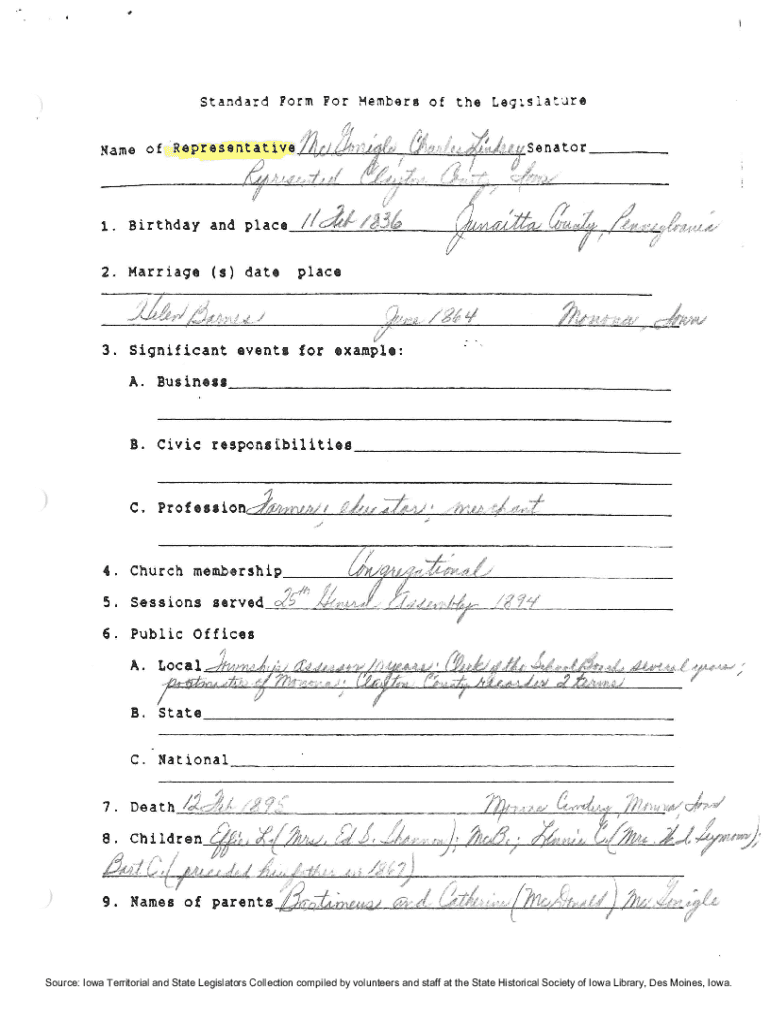 Standard Form For Members of the Legislature
Name of Representative McGonigle, Charles Lindsey Senator
Represented Clayton County, Iowa
1. Birthday and place 11 Feb 1836 Junaitta County, Pennsylvania
2. Marriage (s) date place
Helen Barnes June 1864 Monona, Iowa
3. Significant events for example:
A. Business
B. Civic responsibilities
C. Profession Farmer; educator; merchant
4. Church membership Congregational
5. Sessions served 25th General Assembly 1894
6. Public Offices
A. Local Township assessor years; Clerk of the School Board several years;
postmaster of Monona; Clayton County Recorder 2 terms
B. State
C. National
7. Death 12 Feb 1895 Monona Cemetery, Monona, Iowa
8. Children Effie L. (Mrs. Ed S. Shannon); McB.; C. (Mrs. Seymour);
Bart C. (preceded his father in 1867)
9. Names of parents Bartimeus and Catherine (McDonald) McGonigle
Source: Iowa Territorial and State Legislators Collection compiled by volunteers and staff at the State Historical Society of Iowa Library, Des Moines, Iowa.